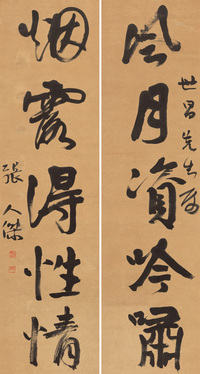 风月资吟啸
世昌先生属
烟霞得性情
張人傑